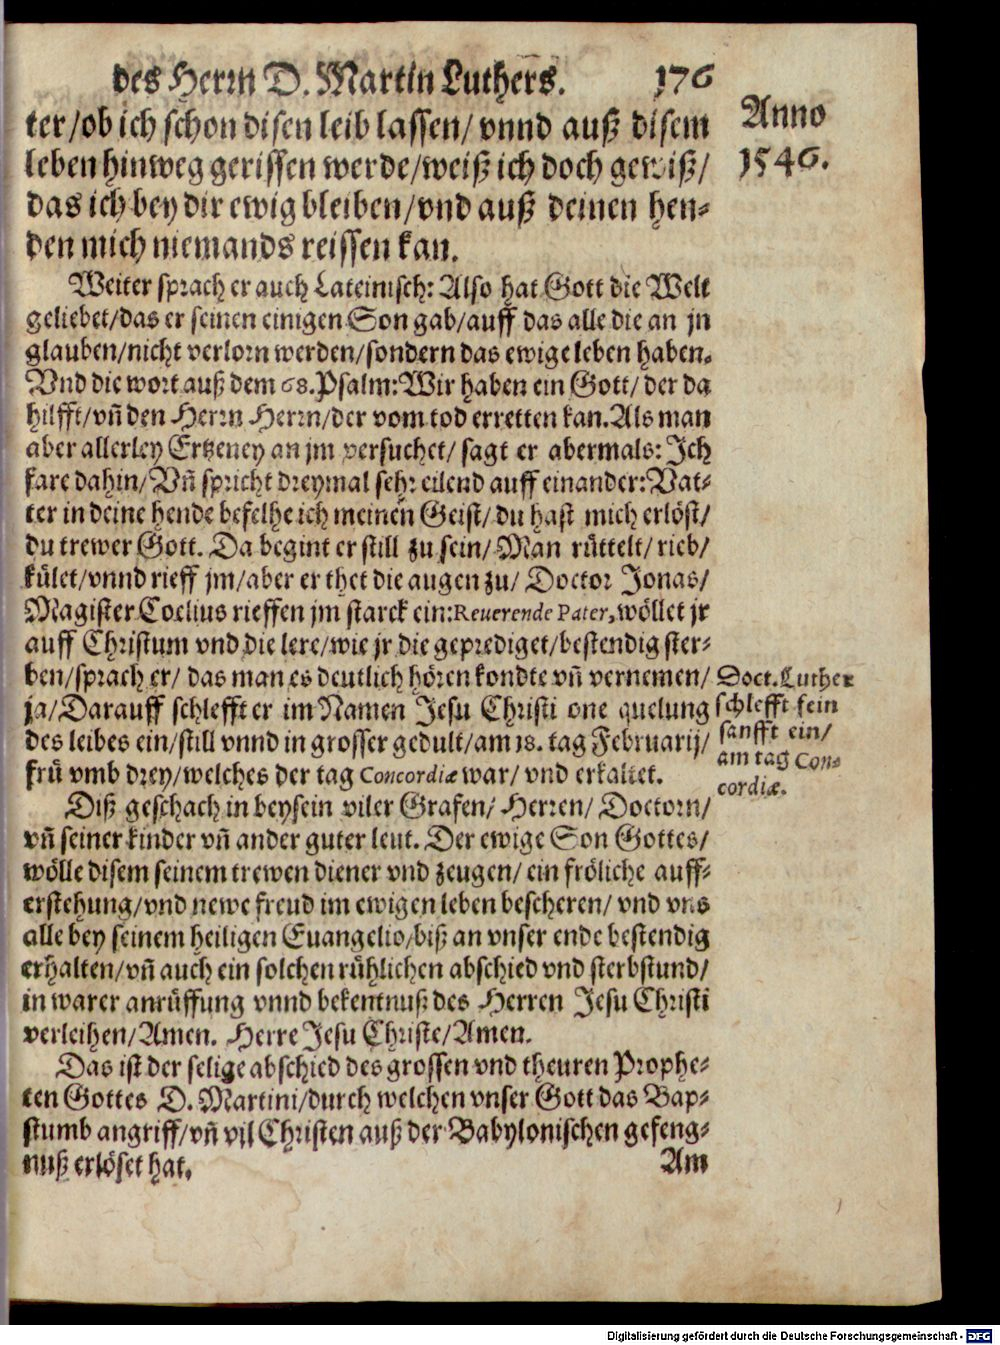 des Herrn D. Martin Luthers. 176
Anno
1546.
ter/ob ich schon disen leib lassen/ vnnd auß disem
leben hinweg gerissen werde/weiß ich doch gewiß/
das ich bey dir ewig bleiben/vnd auß deinen hen-
den mich niemands reissen kan.
Weiter sprach er auch Lateinisch: Also hat Gott die Welt
geliebet/das er seinen einigen Son gab/auff das alle die an jn
glauben/nicht verlorn werden/sondern das ewige leben haben.
Vnd die wort auß dem 68.Psalm:Wir haben ein Gott/ der da
hilfft/vn̄ den Herrn Herrn/der vom tod erretten kan.Als man
aber allerley Ertzeney an jm versuchet/ sagt er abermals: Ich
fare dahin/Vn̄ spricht dreymal sehr eilend auff einander:Vat-
ter in deine hende befelhe ich meinen Geist/ du hast mich erlöst/
du trewer Gott. Da begint er still zu sein/Man rüttelt/ rieb/
kület/vnnd rieff jm/aber er thet die augen zu/ Doctor Jonas/
Magister Coelius rieffen jm starck ein:Reuerende Pater,wöllet jr
auff Christum vnd die lere/wie jr die geprediget/bestendig ster-
ben/sprach er/ das man es deutlich hören kondte vn̄ vernemen/
ja/Darauff schlefft er im Namen Jesu Christi one quelung
des leibes ein/still vnnd in grosser gedult/am 18. tag Februarij/
frü vmb drey/welches der tag Concordiæ war/ vnd erkaltet.
Doct.Luther
schlefft fein
sanfft ein/
am tag Con-
cordiæ.
Diß geschach in beysein viler Grafen/ Herren/ Doctorn/
vn̄ seiner kinder vn̄ ander guter leut. Der ewige Son Gottes/
wölle disem seinem trewen diener vnd zeugen/ ein fröliche auff-
erstehung/vnd newe freud im ewigen leben bescheren/ vnd vns
alle bey seinem heiligen Euangelio/biß an vnser ende bestendig
erhalten/vn̄ auch ein solchen rühlichen abschied vnd sterbstund/
in warer anrüffung vnnd bekentnuß des Herren Jesu Christi
verleihen/Amen. Herre Jesu Christe/Amen.
Das ist der selige abschied des grossen vnd theuren Prophe-
ten Gottes D. Martini/durch welchen vnser Gott das Bap-
stumb angriff/vn̄ vil Christen auß der Babylonischen gefeng-
nuß erlöset hat.
Am
Digitalisierung gefördert durch die Deutsche Forschungsgemeinschaft - DFG